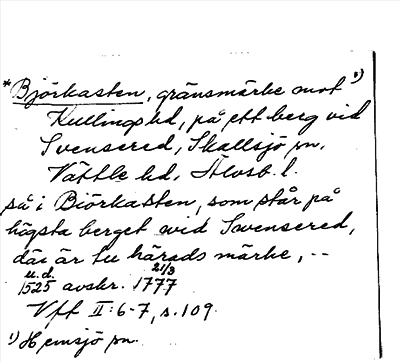 *Björkasten, gränsmärke mot ¹)
Kullings hd, på ett berg vid
Svensered, Skallsjö sn.
Vättle hd, Älvsb. l.
så i Biörkasten, som står på
högsta berget wid Swensered,
där är tu härads märke, --
u. d.
21/3
1525 avskr. 1777
Vft II:6-7, s. 109.
¹) Hemsjö sn.